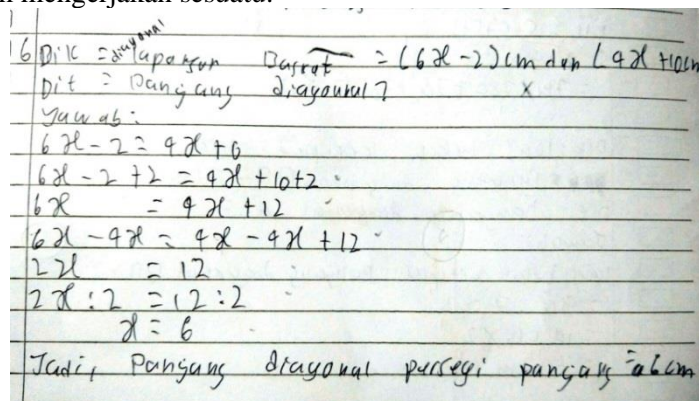 n mengerjakan sesuatu.
6 Dik = diagonal lapangan Basket = (6x - 2) cm dan (4x + 10 cm
Dit = Panjang diagonal?
Jawab:
6x - 2 = 4x + 0
6x - 2 + 2 = 4x + 10 + 2
6x = 4x + 12
6x - 4x = 4x - 4x + 12
2x = 12
2x : 2 = 12 : 2
x = 6
Jadi, Panjang diagonal persegi panjang = 6 cm